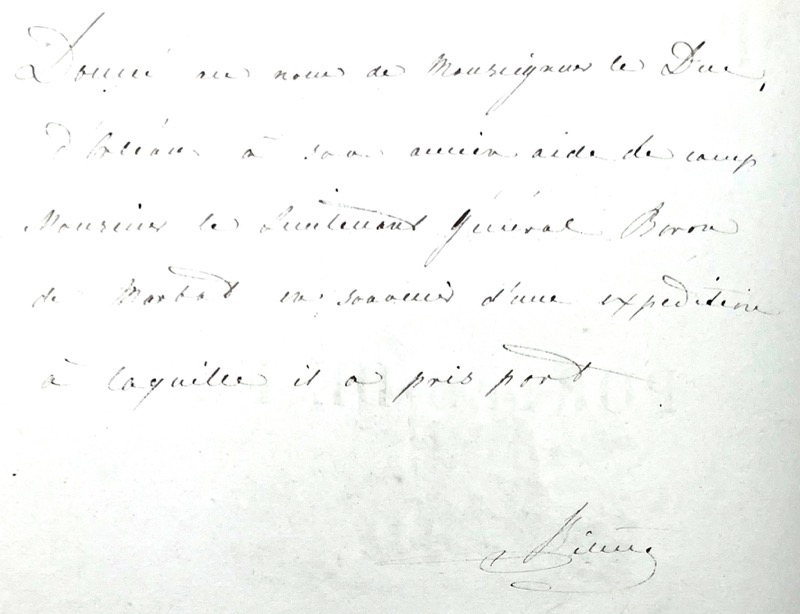 Donné au nom de Monseigneur le Duc
d'Orléans à son ancien aide de camp
Monsieur le Lieutenant Général Baron
de Marbot en souvenir d'une expédition
à laquelle il a pris part